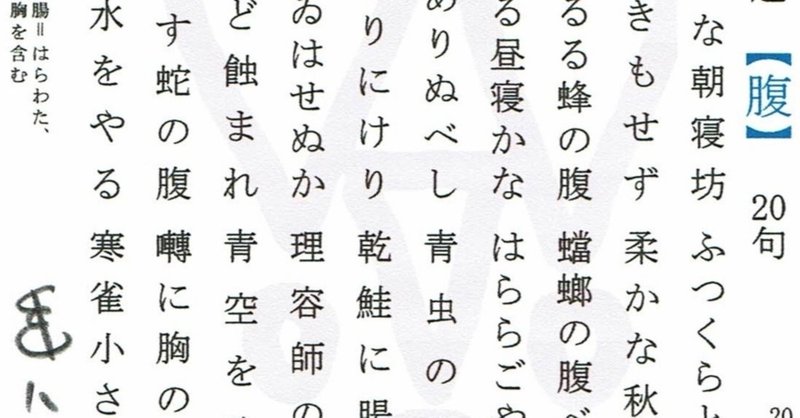 【腹】 20句
20
な朝寝坊 ふつくら
きもせず 柔かな秋
るる蜂の腹 蟷螂の腹べ
る昼寝かな はららごや
りぬべし 青虫の
りにけり 乾鮭に腸
ゐはせぬか 理容師の
ど蝕まれ 青空を
す蛇の腹 囀に胸の
水をやる 寒雀小さ
腸＝はらわた、
胸を含む